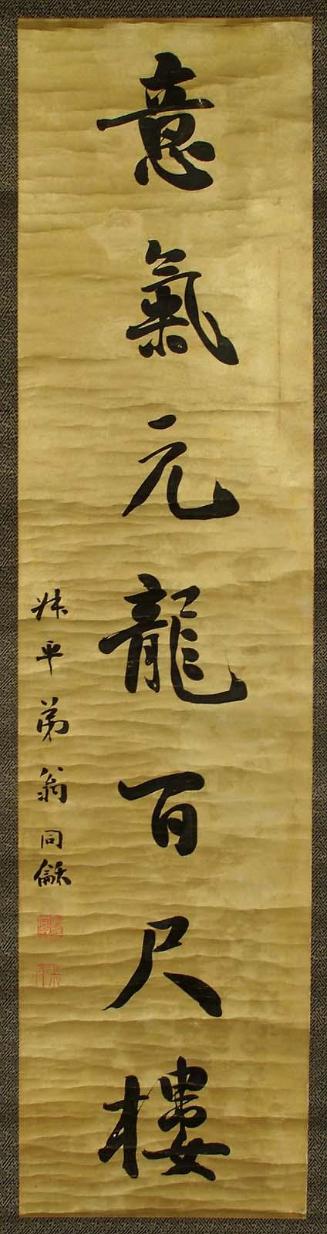 意氣元龍百尺樓
平弟翁同龢